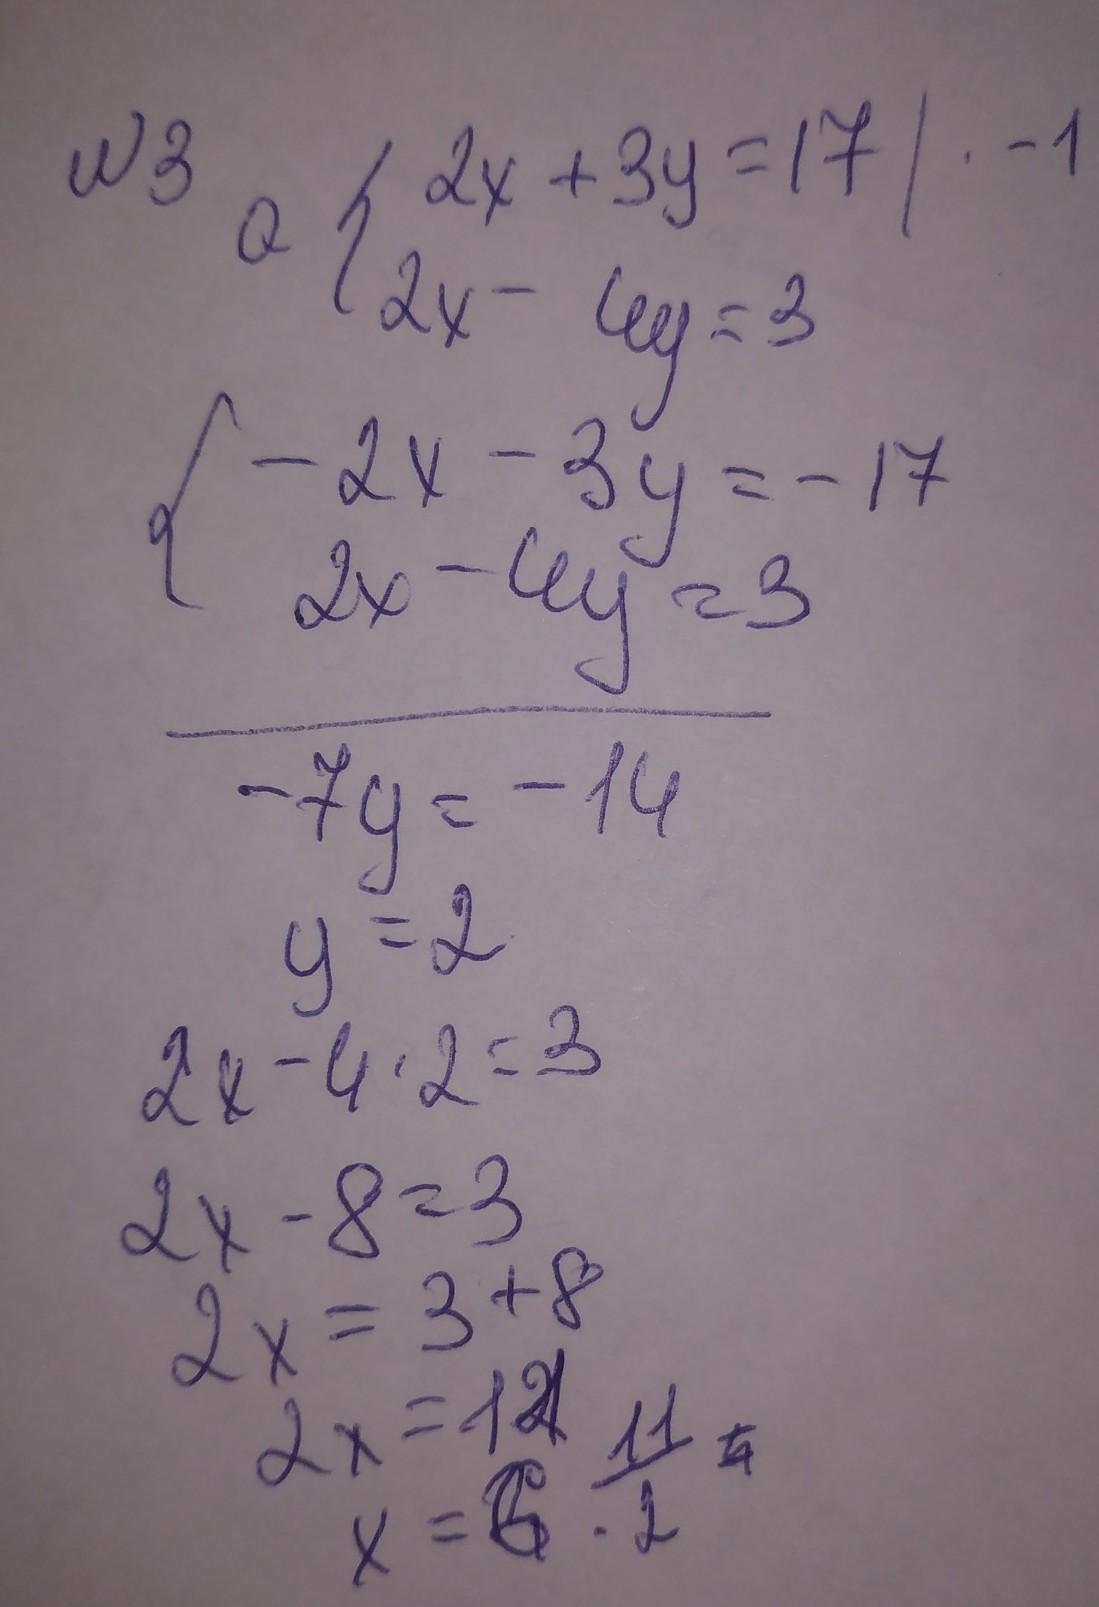 №3 a { 2x + 3y = 17 | · -1
2x - 4y = 3
{ -2x - 3y = -17
2x - 4y = 3
-7y = -14
y = 2
2x - 4 · 2 = 3
2x - 8 = 3
2x = 3 + 8
2x = 11
x = 11/2